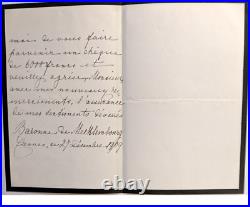 moi de vous faire
parvenir un chèque
de 6000 francs et
veuillez agréer Monsieur
avec mes nouveaux re-
merciements, l'assurance
de mes sentiments dévoués
Baronne de Mecklembourg
Cannes, ce 27 décembre 1909